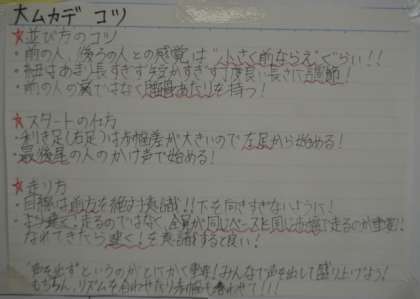 大ムカデ コツ
☆並び方のコツ
・前の人、後ろの人との感覚は"小さく前ならえ"ぐらい!!
・紐はあまり長すぎず短かすぎず丁度良い長さに調節!
・前の人の肩ではなく あたりを持つ!
☆スタートの仕方
・利き足(右足)は歩幅差が大きいので左足から始める!
・最後尾の人のかけ声で始める!
☆走り方
・目線は前方を 意識!!下を向きすぎないように!
・より速く走るのではなく、全員が同じペースと同じ歩幅で走るのが重要!
なれてきたら速く!を意識すると良い!
"声を出す"というのがとにかく重要!みんなで声を出して盛り上げよう!
もちろん、リズムを合わせたり歩幅も合わせて!!!